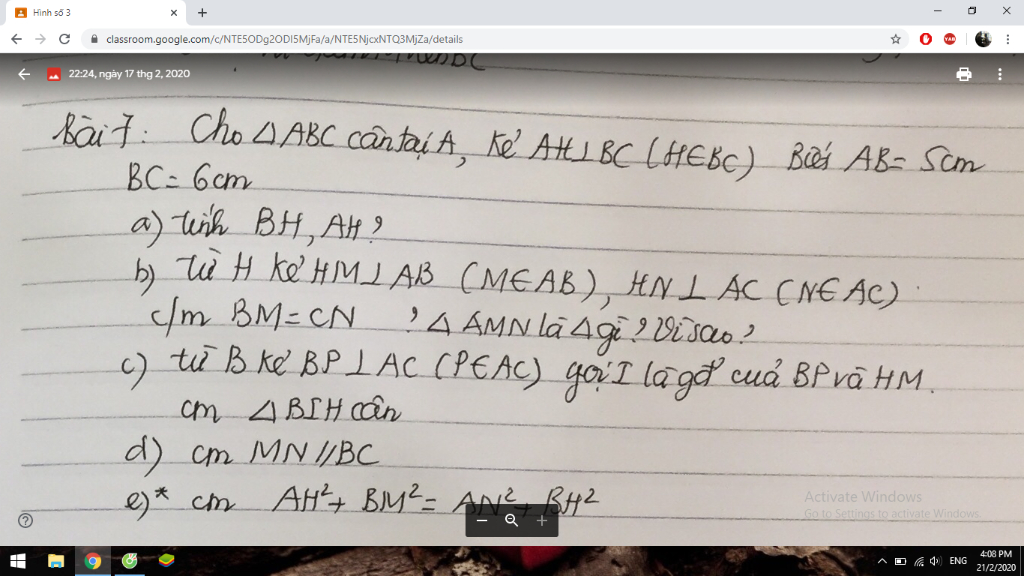 Hình số 3
classroom.google.com/c/NTE5ODg2ODI5MjFa/a/NTE5NjcxNTQ3MjZa/details
22:24, ngày 17 thg 2, 2020
Bài 7: Cho △ABC cân tại A, kẻ AH⊥BC (H∈BC) Biết AB= 5cm
BC= 6cm
a) tính BH, AH?
b) từ H kẻ HM⊥AB (M∈AB), HN⊥AC (N∈AC)
c/m BM=CN ? △AMN là △gì? Vì sao?
c) từ B kẻ BP⊥AC (P∈AC) gọi I là gđ cuả BP và HM.
cm △BIH cân
d) cm MN//BC
e)* cm AH²+ BM²= AN²+ BH²
Activate Windows
Go to Settings to activate Windows.
ENG
4:08 PM
21/2/2020